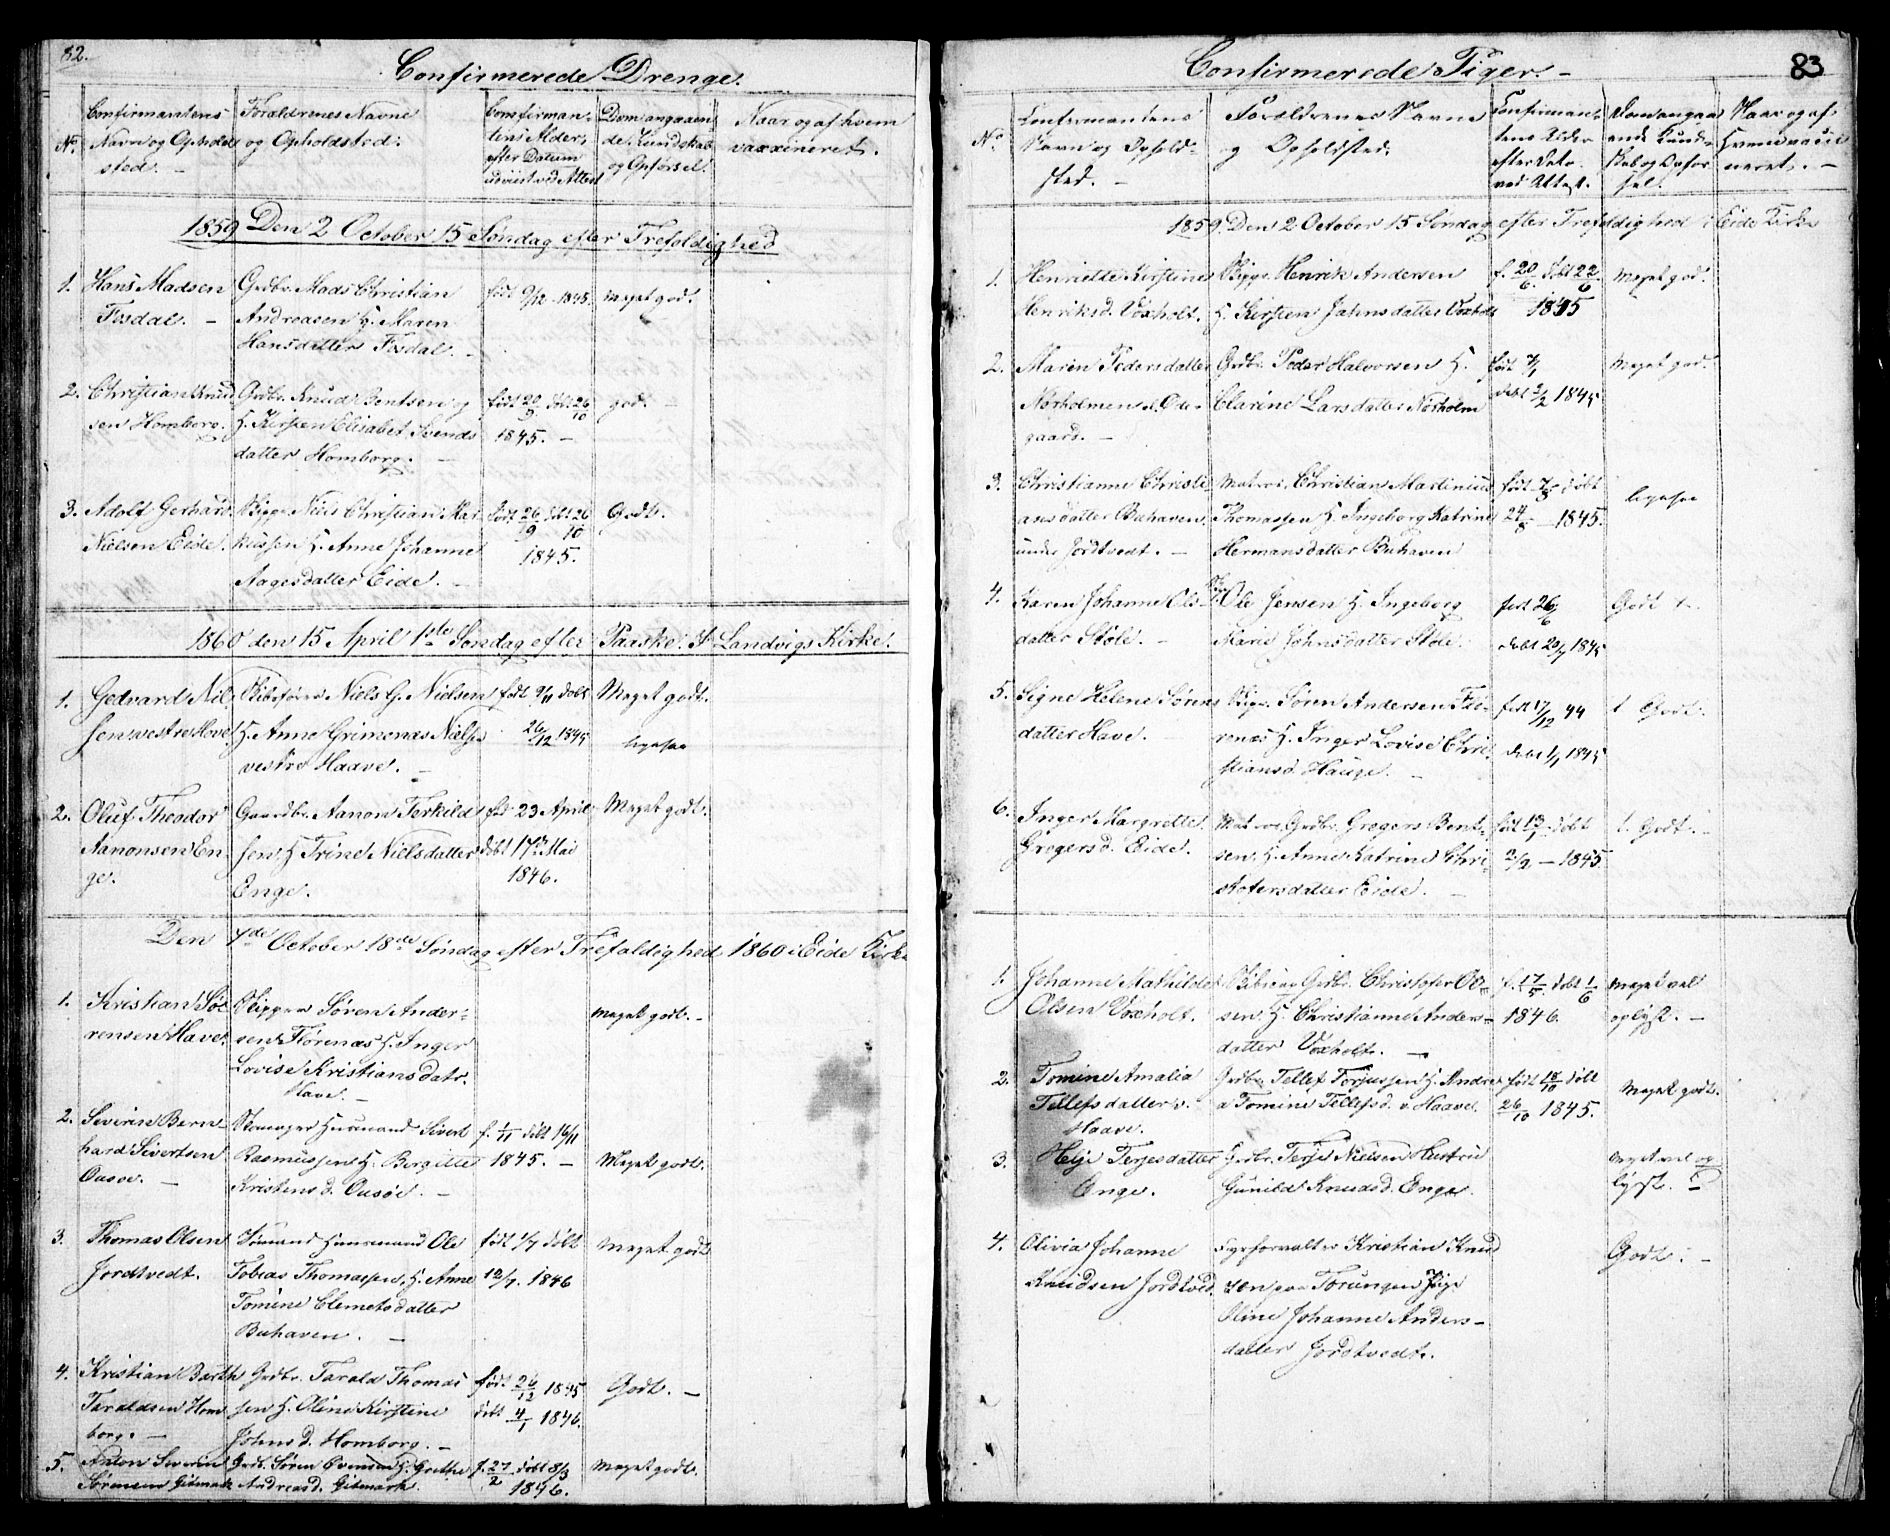 82.
Confirmerede Drenge.
No.
Confirmantens
Navn og Opholds
sted. –
Forældrenes Navne
og Opholdsted.
Confirman-
tens Alder
efter Datum
udviist ved Attest
Dom angaaen
de Kundskab
og Opførsel.
Naar og af hvem
vaxineret.
1859 Den 2 October 15 Søndag efter Trefoldighed
1. Hans Madsen
Fosdal. –
Grdbr. Mads Christian
Andreasen H. Maren
Hansdatter Fosdal. –
født 9/12 1845.
Meget god.
2. Christian Knud
sen Homborg.
Grdbr. Knud Bentsen og
H. Kirsten Elisabet Svends
datter Homborg. –
født 20/9 døbt 26/10
1845. –
god. –
3. Adolf Gerhard
Nielsen Eide.
Skipp. Niels Christian Mar
kussen H. Anne Johanne
Aagesdatter Eide. –
født 26/9 døbt 26/10
1845.
Godt.
1860 den 15 April 1ste Søndag efter Paaske. I Landvigs Kirke.
1. Gedvard Nil
sen vestre Hove
Skibsfører Niels G. Nielsen
H. Anne Grimenæs Nielsd
vestre Haave. –
født 9/11 døbt
26/12 1845
Meget godt.
ligesaa
2. Oluf Theodor
Aanonsen En
ge.
Gaardbr. Aanon Terkild
sen H Trine Nielsdatter
Enge.
fød 23 April
døbt 17de Mai
1846.
Meget godt.
Den 7de October 18de Søndag efter Trefaldighed 1860 i Eide Kirke
1. Kristian Sø
rensen Have.
Skipper Søren Ander-
sen Florenæs H. Inger
Lovise Kristiansdatr.
Have. –
Meget godt. –
2. Severin Bern
hard Sivertsen
Ousøe. –
Husmand Sivert
Rasmussen H. Bergitte
Kristensd. Ousøe. –
f. 1/11 døbt 16/11
1845. –
Meget godt.
3. Thomas Olsen
Jordtvedt.
Sømand Huusmand Ole
Tobias Thomassen, H. Anne
Tomine Clemetsdatter
Buhaven. –
født 1/7 døbt
12/7. 1846
Meget godt
4. Kristian Barth
Taraldsen Hom
borg. –
Grdbr. Tarald Thomas
sen H. Oline Kirstine
Johnsd. Homborg. –
født 26/12 1845
døbt 4/1 1846.
Godt. –
5. Anton Severin
Sørensen Gitmark
Grdb. Søren Evensen H. Grethe
Andreasd. Gitmark.
f. 27/2 døbt 8/3
1846.
Meget godt.
83
Confirmerede Piger. –
No.
Confermantens
Navn og Ophold-
sted. –
Forældrenes Navne
og Opholdsted.
Confirman-
tens Alder
efter Dato
ved Attest.
Dom angaa
ende Kund-
skab og Opfør
sel.
Naar og af
hvem vacci
neret. –
1859. Den 2 October 15 Søndag efter Trefoldighed i Eide Kirke
1. Henriette Kirstine
Henriksd. Voxholt.
Skipp. Henrik Andersen
H. Kirsten Jahnsdatter Voxholt
f. 20/6. døbt 22/6
1845
Meget god.
2. Maren Pedersdatter
Norholmen
gaard. –
Grdbr. Peder Halvorsen H.
Clarine Larsdatter Norholm
født 7/1
døbt 2/2 1845
Meget god.
3. Christianne Christi-
ansdatter Buhaven
under Jordtvedt. –
Matros, Christian Martinius
Thomassen H. Ingeborg Katrine
Hermansdatter Buhaven
døbt
24/8 – 1845.
ligesaa
4. Karen Johanne Ols
datter Støle. –
Ole Jensen H. Ingeborg
Marie Johnsdatter Støle.
født 26/6
døbt 20/7 1845
Godt
5. Signe Helene Sørens
datter Have. –
Skipp. Søren Andersen Flo-
renæs H. Inger Lovise Chri-
stiansd. Hauge. –
født 17/12 44
døbt 1/1 1845
Godt.
6. Inger Margrette
Gregersd. Eide.
Matros, Grdbr. Gregers Bent-
sen. H. Anne Katrine Chri-
stofersdatter Eide. –
født 13/1 døbt
2/2 – 1845.
Godt. –
1. Johanne Mathilde
Olsen Voxholt.
Grdbr. Christofer Ol-
sen. H. Christianne Anders-
datter Voxholt. –
f. 17/5. døbt 1/6
1846.
Meget vel
oplyst. –
2. Tomine Amalia
Tellefsdatter v.
Haave.
Grdbr. Tellef Torjussen H. Andre
a Tomine Tellefsd. v. Haave.
født 18/10 døbt
26/10 1845.
Meget godt.
3. Helje Terjesdatter
Enge.
Grdbr. Terje Nielsen Hustru
Gunild Knudsd. Enge.
Meget vel op
lyst. –
4. Olivia Johanne
Knudsen Jordtved.
Fyrforvalter Kristian Knud
sen paa Torungen
Oline Johanne Anders-
datter Jordtvedt.
Godt. –